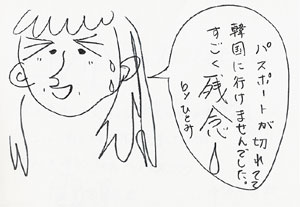 パスポートが切れてて
韓国に行けませんでした。
すごく残念
by ひとみ